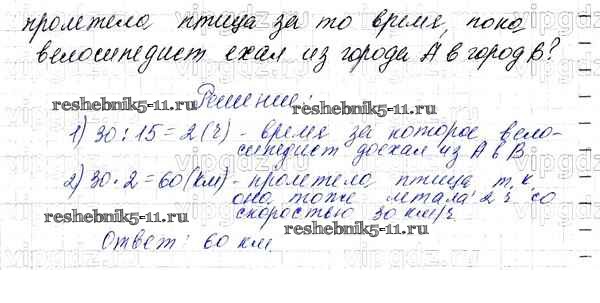 пролетела птица за то время, пока
велосипедист ехал из города А в город В?
Решение:
reshebnik5-11.ru
reshebnik5-11.ru
1) 30 : 15 = 2 (ч) - время за которое вело-
сипедист доехал из А в В
2) 30 · 2 = 60 (км) - пролетела птица т.к.
она тоже летала 2 ч со
скоростью 30 км/ч.
reshebnik5-11.ru
reshebnik5-11.ru
Ответ: 60 км